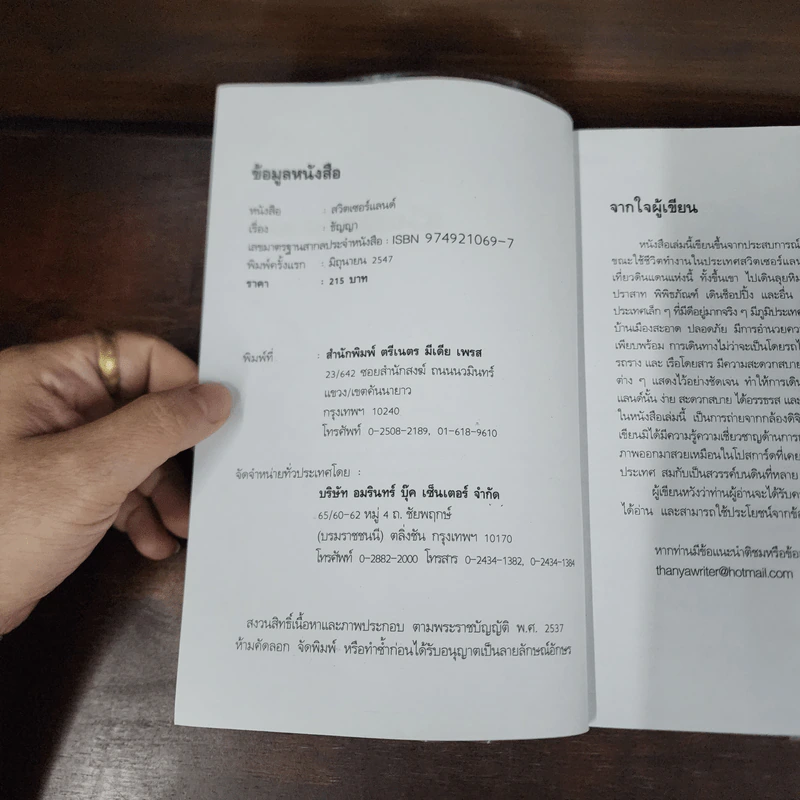 ข้อมูลหนังสือ
หนังสือ : สวิตเซอร์แลนด์
เรื่อง : ธัญญา
เลขมาตรฐานสากลประจำหนังสือ : ISBN 974921069-7
พิมพ์ครั้งแรก : มิถุนายน 2547
ราคา : 215 บาท
พิมพ์ที่ : สำนักพิมพ์ ตรีเนตร มีเดีย เพรส
23/642 ซอยสำนักสงฆ์ ถนนนวมินทร์
แขวง/เขตคันนายาว
กรุงเทพฯ 10240
โทรศัพท์ 0-2508-2189, 01-618-9610
จัดจำหน่ายทั่วประเทศโดย :
บริษัท อมรินทร์ บุ๊ค เซ็นเตอร์ จำกัด
65/60-62 หมู่ 4 ถ. ชัยพฤกษ์
(บรมราชชนนี) ตลิ่งชัน กรุงเทพฯ 10170
โทรศัพท์ 0-2882-2000 โทรสาร 0-2434-1382, 0-2434-1384
สงวนสิทธิ์เนื้อหาและภาพประกอบ ตามพระราชบัญญัติ พ.ศ. 2537
ห้ามคัดลอก จัดพิมพ์ หรือทำซ้ำก่อนได้รับอนุญาตเป็นลายลักษณ์อักษร
จากใจผู้เขียน
หนังสือเล่มนี้เขียนขึ้นจากประสบการณ์
ขณะใช้ชีวิตทำงานในประเทศสวิตเซอร์แลน
เที่ยวดินแดนแห่งนี้ ทั้งขึ้นเขา ไปเดินลุยหิม
ปราสาท พิพิธภัณฑ์ เดินช็อปปิ้ง และอื่น
ประเทศเล็ก ๆ ที่มีดีอยู่มากจริง ๆ มีภูมิประเท
บ้านเมืองสะอาด ปลอดภัย มีการอำนวยคว
เพียบพร้อม การเดินทางไม่ว่าจะเป็นโดยรถไ
รถราง และ เรือโดยสาร มีความสะดวกสบาย
ต่าง ๆ แสดงไว้อย่างชัดเจน ทำให้การเดิน
แลนด์นั้น ง่าย สะดวกสบาย ได้อรรถรส และ
ในหนังสือเล่มนี้ เป็นการถ่ายจากกล้องดิจิ
เขียนมิได้มีความรู้ความเชี่ยวชาญด้านการถ
ภาพออกมาสวยเหมือนในโปสการ์ดที่เคย
ประเทศ สมกับเป็นสวรรค์บนดินที่หลาย
ผู้เขียนหวังว่าท่านผู้อ่านจะได้รับค
ได้อ่าน และสามารถใช้ประโยชน์จากข้อ
หากท่านมีข้อแนะนำติชมหรือข้อ
thanyawriter@hotmail.com